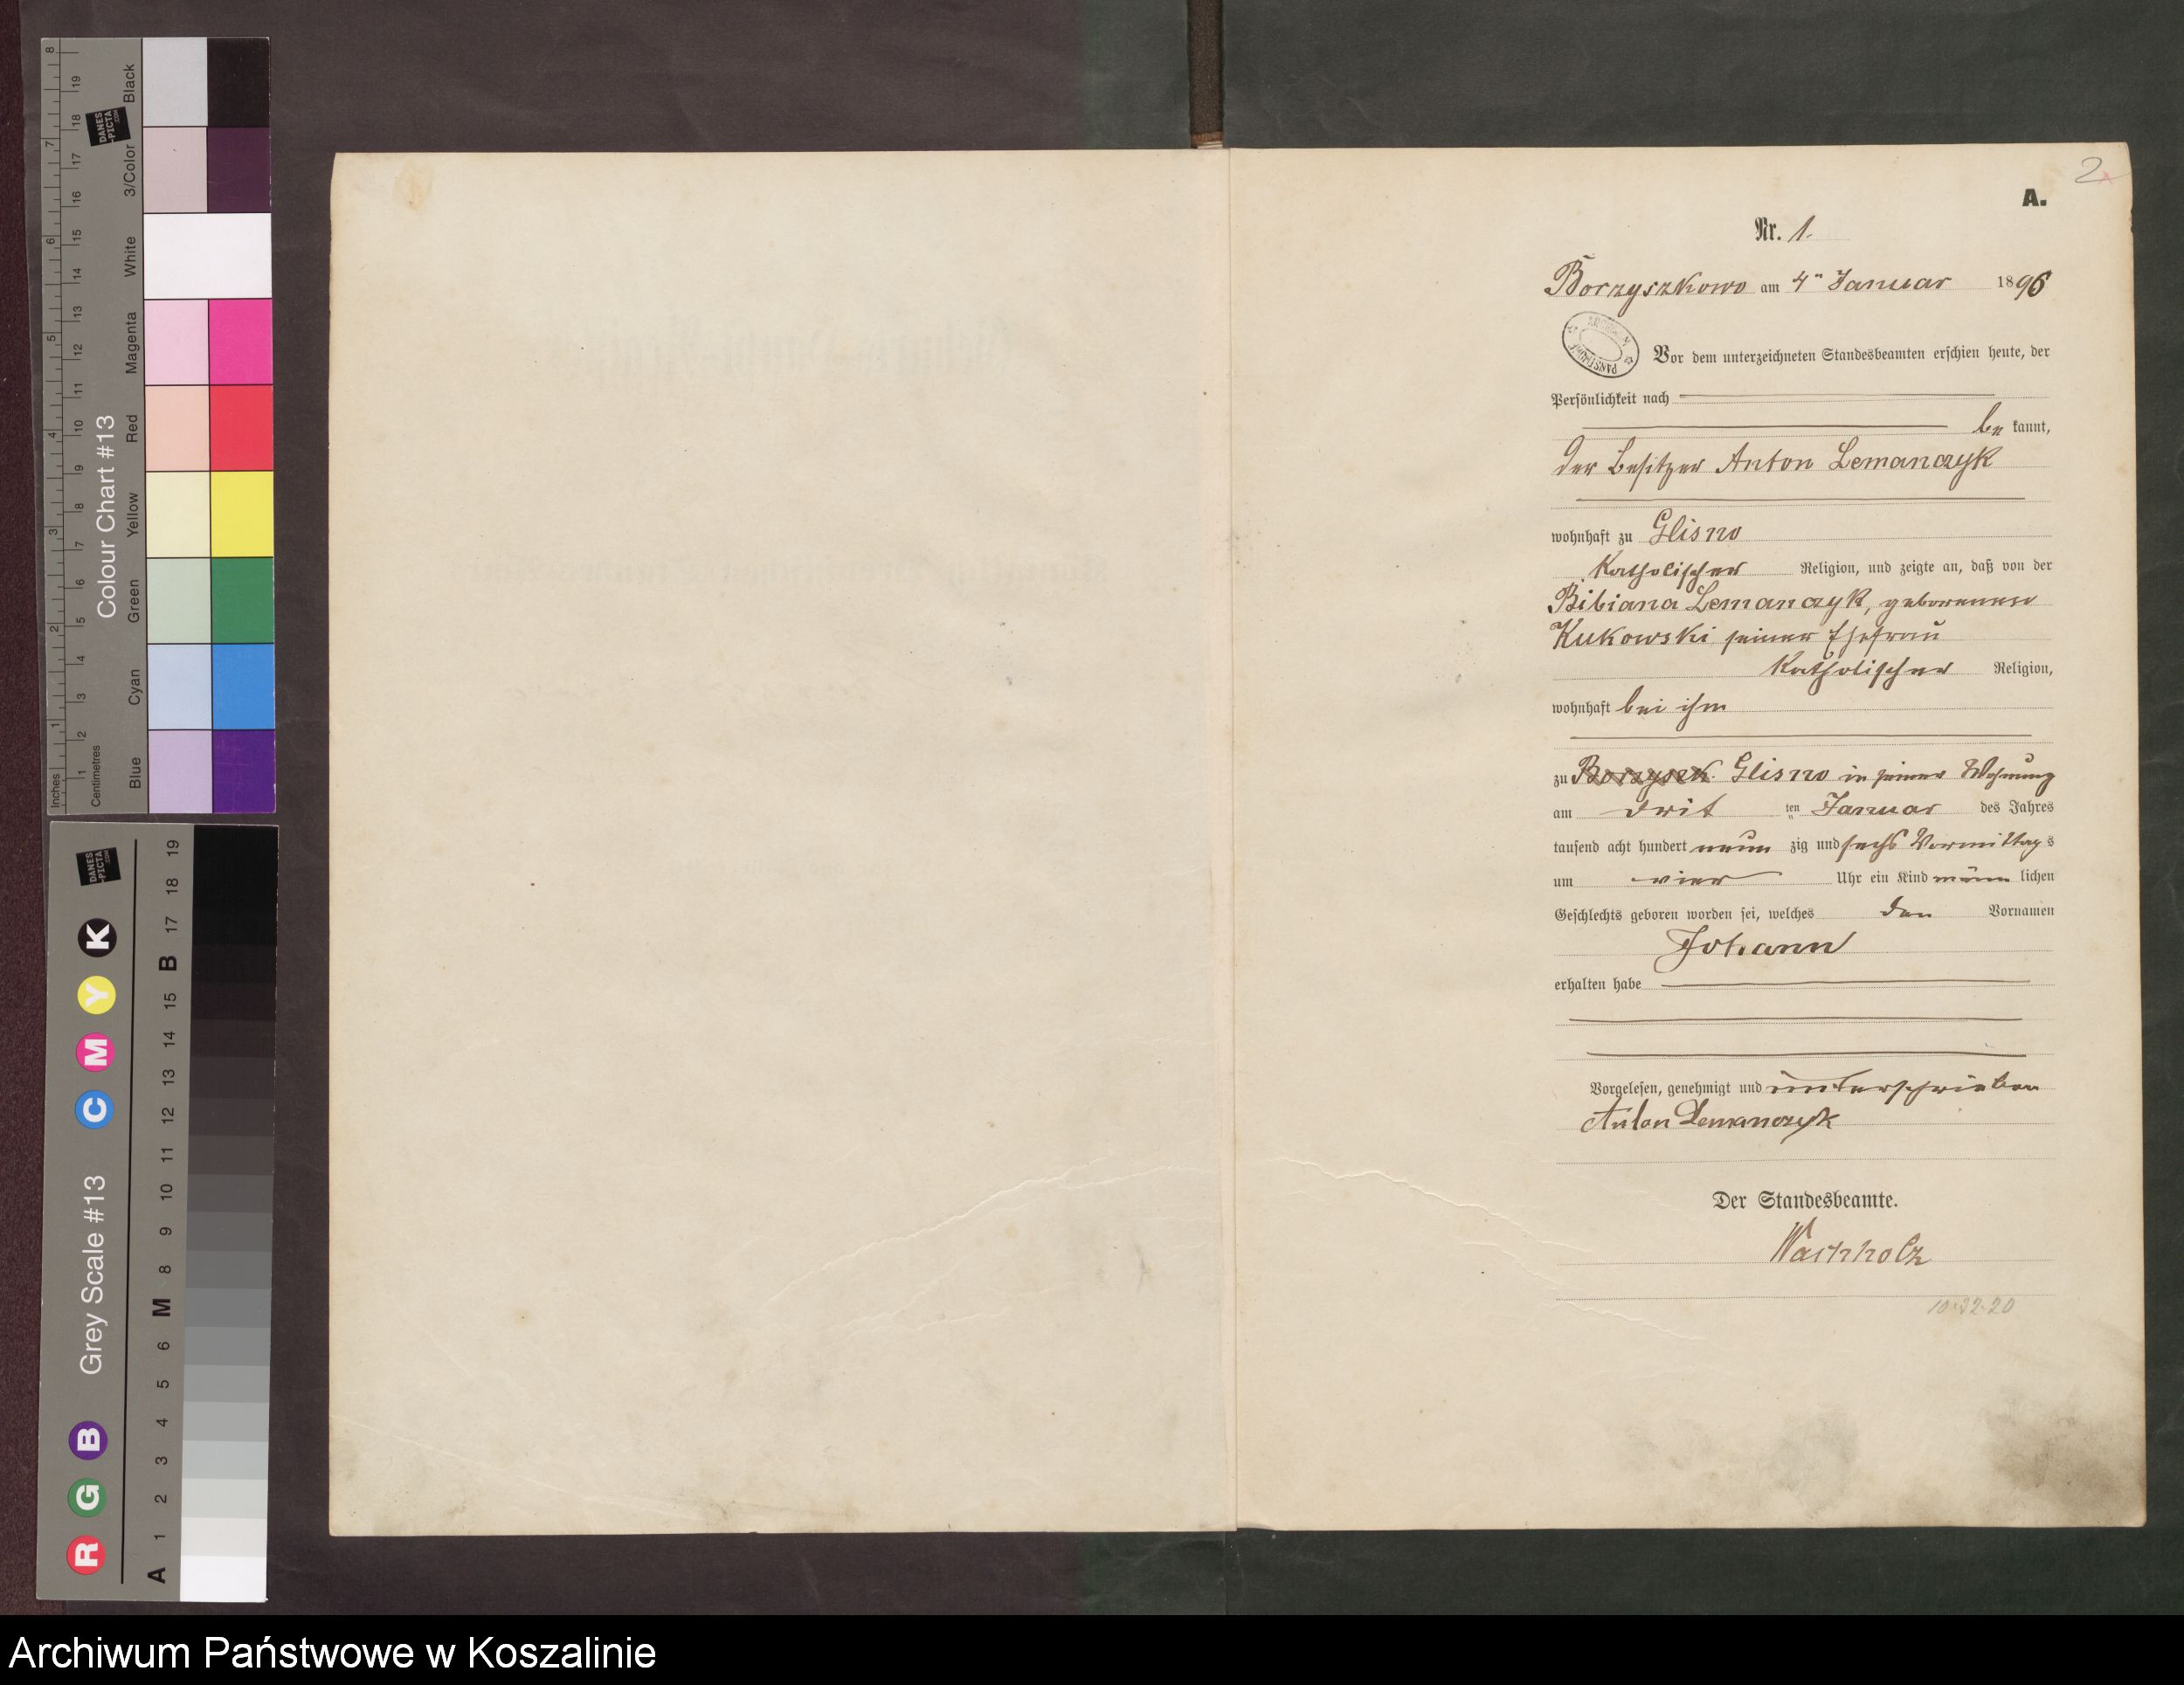 2
A.
Nr. 1.
Borzyszkowo am 4ten Januar 1896
ARCHIWUM PAŃSTWOWE
Vor dem unterzeichneten Standesbeamten erschien heute, der
Persönlichkeit nach
be kannt,
der Besitzer Anton Lemanczyk
wohnhaft zu Glisno
katholischer Religion, und zeigte an, daß von der
Bibiana Lemanczyk, geborenene
Kukowski seiner Ehefrau
katholischer Religion,
wohnhaft bei ihm
zu Borzyszk. Glisno in seiner Wohnung
am drit ten Januar des Jahres
tausend acht hundert neun zig und sechs Vormittag s
um vier Uhr ein Kind männ lichen
Geschlechts geboren worden sei, welches den Vornamen
Johann
erhalten habe
Vorgelesen, genehmigt und unterschrieben
Anton Lemanczyk
Der Standesbeamte.
Wachholz
10.32.20
Inches 1 2 3 4 5 6 7 8
Centimetres 1 2 3 4 5 6 7 8 9 10 11 12 13 14 15 16 17 18 19
Colour Chart #13
Blue Cyan Green Yellow Red Magenta White 3/Color Black
DANES
-PICTA
.COM
Grey Scale #13
R G B C M Y K
A 1 2 3 4 5 6 M 8 9 10 11 12 13 14 15 B 17 18 19
DANES
-PICTA
.COM
Archiwum Państwowe w Koszalinie